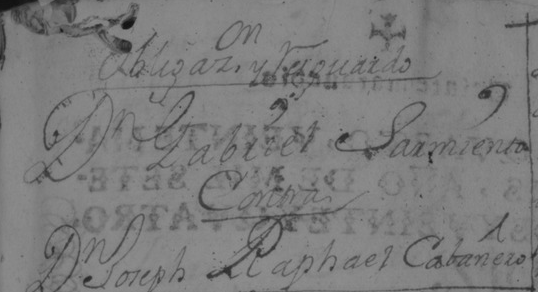 Obligazon y Resguardo
Dn Gabriel Sarmiento
Contra
Dn Joseph Raphael Cabañero